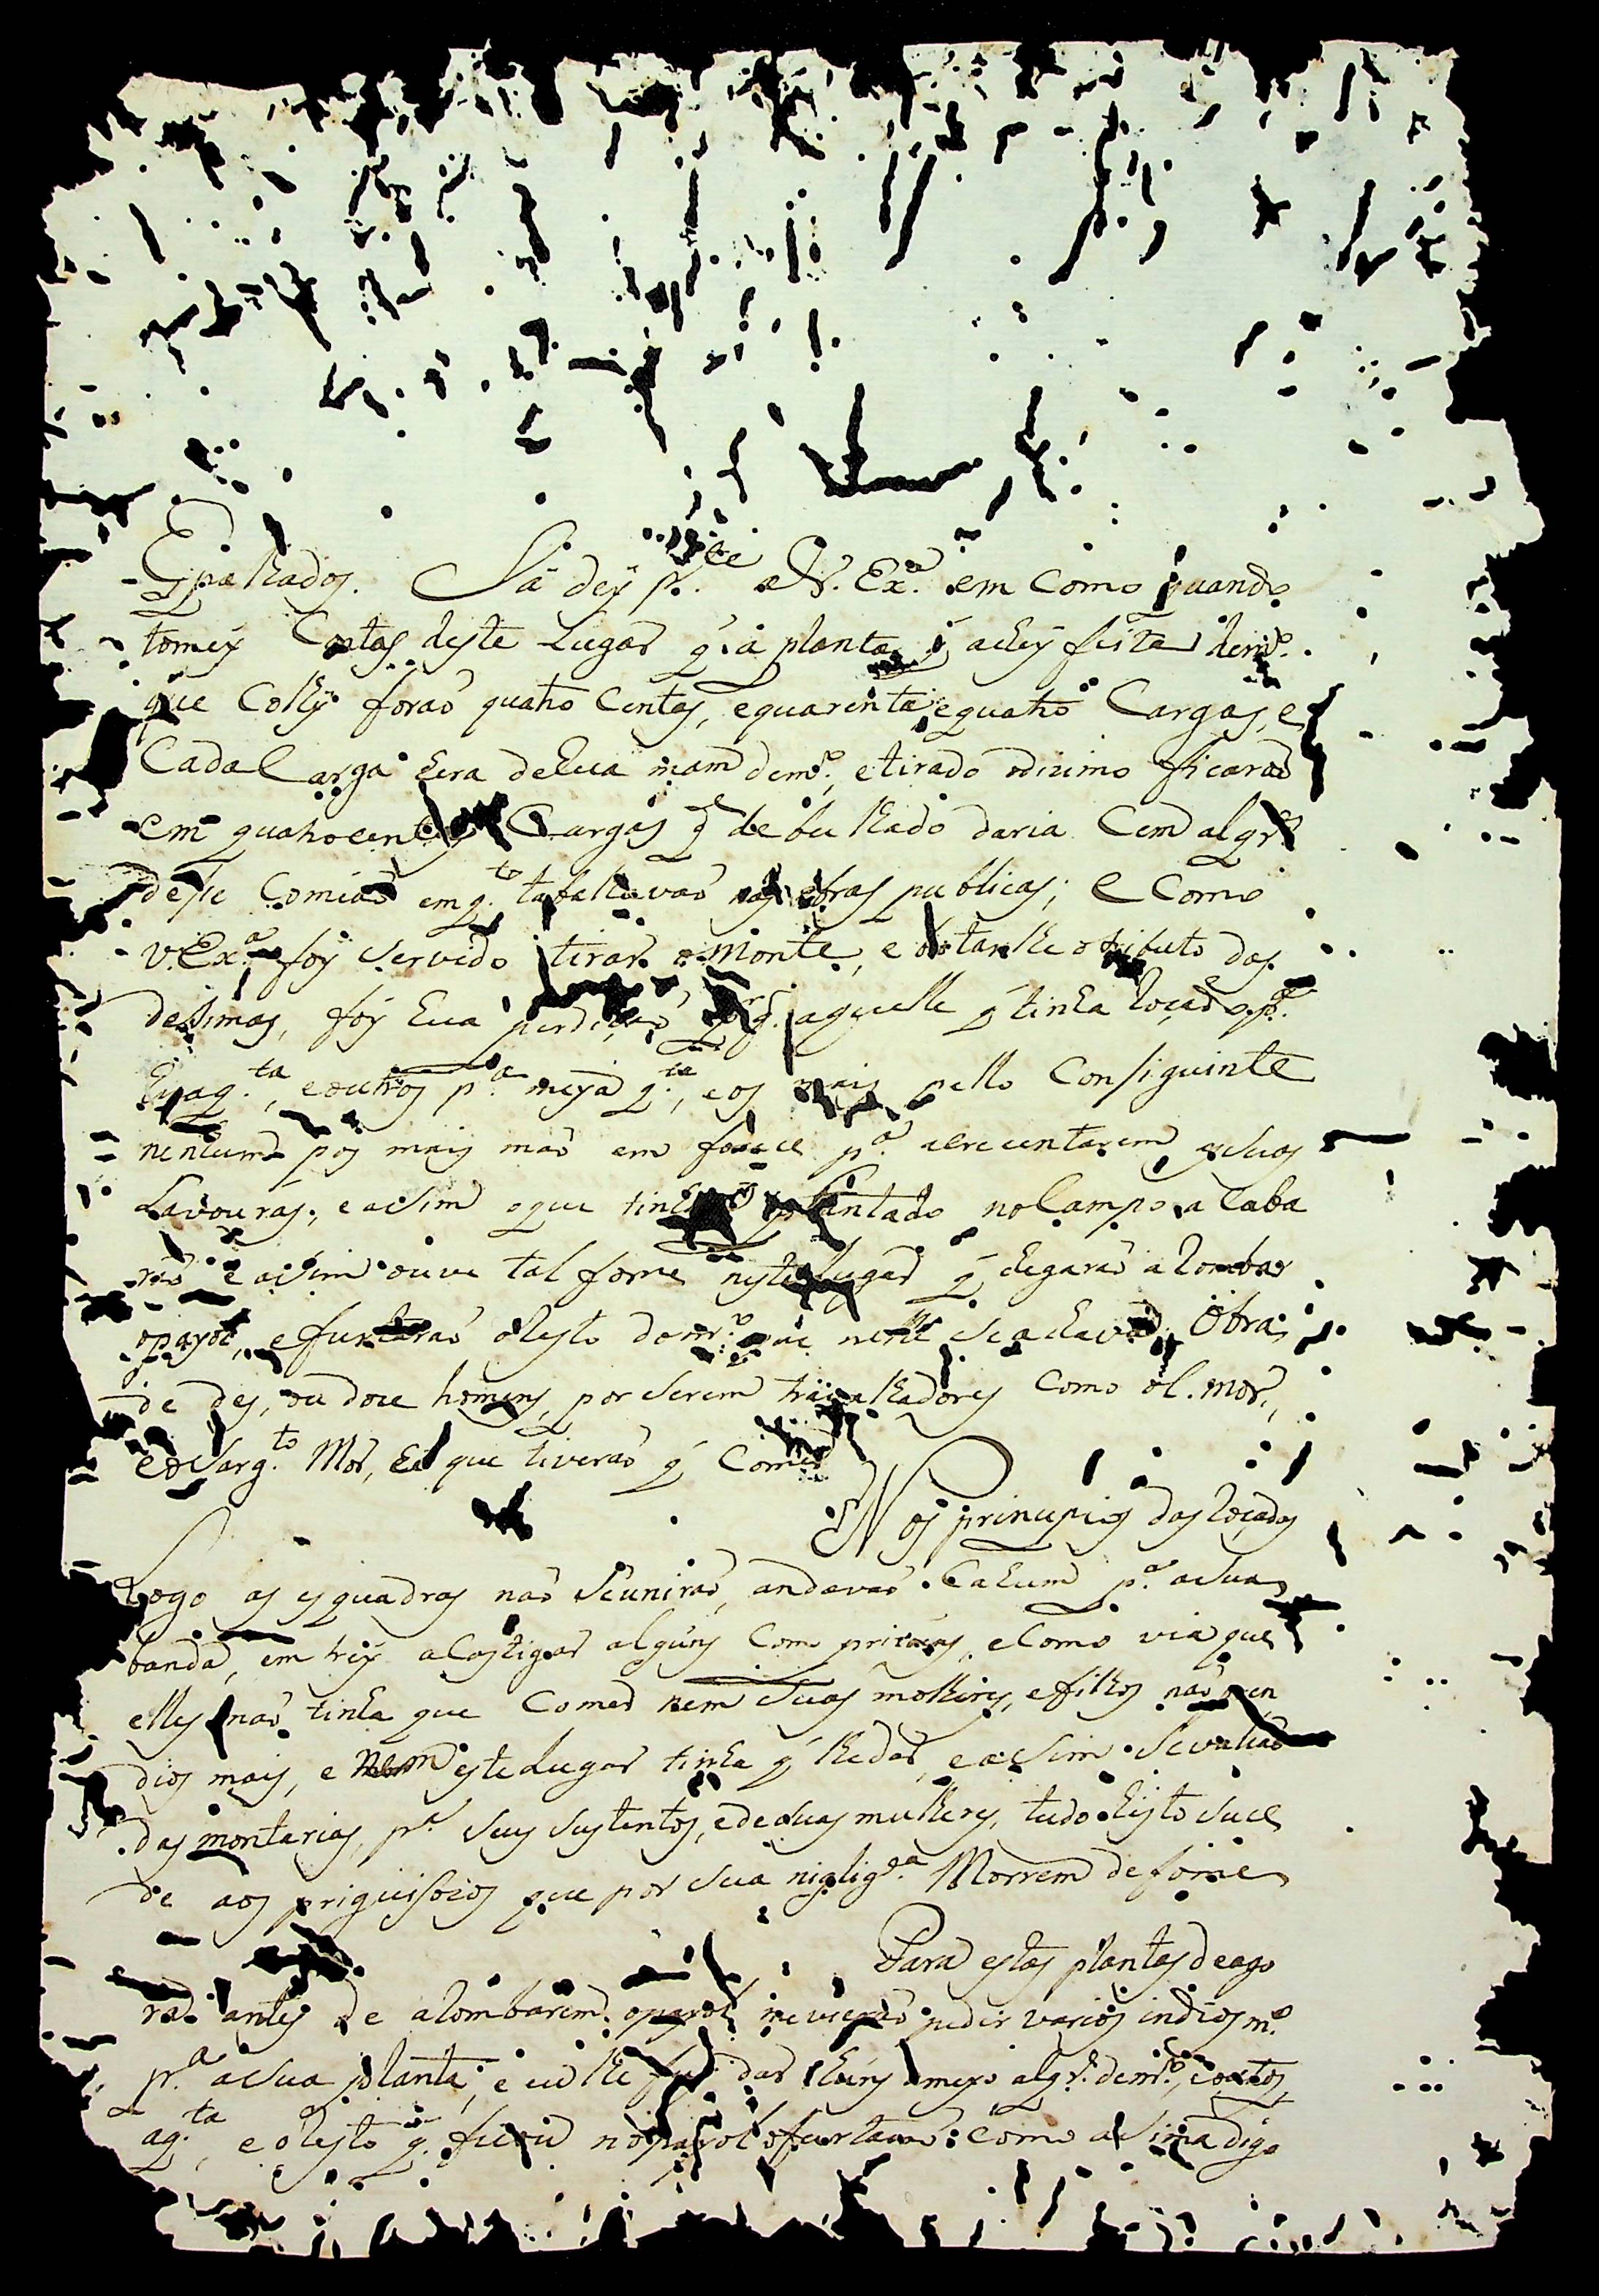 Espalhados. Já dey p.te a V. Ex.a em como quando
tomey Contas deste Lugar q̃ a planta q̃ achey feita demº.
que Colhy forão quatro Centas, e quarenta e quatro Cargas, e
Cada Carga hera de hua mam demº., e tirado o dizimo ficarão
em quatrocentas Cargas q̃ debulhado daria Cem alqr.s
deste Comião em q.to trabalhavão nas obras publicas; e Como
V. Ex.a foy servido tirar o Monte, e botarlhe o tributo dos
desimos, foy hua perdição p.r q̃ aquelle q̃ tinha roçado p.a
hua q.ta, e outros p.a meya q.ta, e os mais pello Consiguinte
nenhum pos mais mão em fouce p.a acrecentarem as suas
Lavouras, e asim o que tinhão plantado no Campo acaba
rão e asim ouve tal fome neste Lugar q̃ chegarão a Rombar
o payol, e furtarão o resto domº. que nelle se achava. Obra
de des, ou doze homens, por serem trabalhadores Como o C. mor,
e o Sarg.to Mor, he que tiverão q̃ Comer
Nos principios dos roçados
Logo as esquadras não se unirão, andavão Cahum p.a a sua
banda, entrey a Castigar alguns Com prizoens, e Como via que
elles não tinha que Comer nem suas molheres, e filhos não pren
dios mais, e nem este Lugar tinha q̃ lhe dar, e asim se valião
das montarias, p.a seus sustentos, e de suas mulheres, tudo histo suce
de aos priguisozos que por sua niglig.a Morrem de fome
Para estas plantas de ago
ra antes de a Rombarem o payol me vierão pedir varios indios mº.
p.a a sua planta, e eu lhe fuy dar huns a meyo alqr. demº., e outros
a q.ta, e o resto q̃ ficou no payol o furtarão Como asima digo